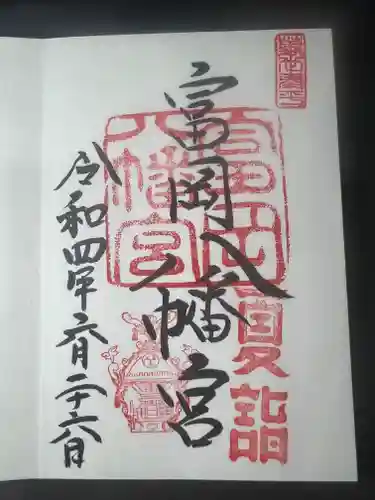 富岡八幡宮
夏詣
富岡八幡宮
令和四年六月二十六日